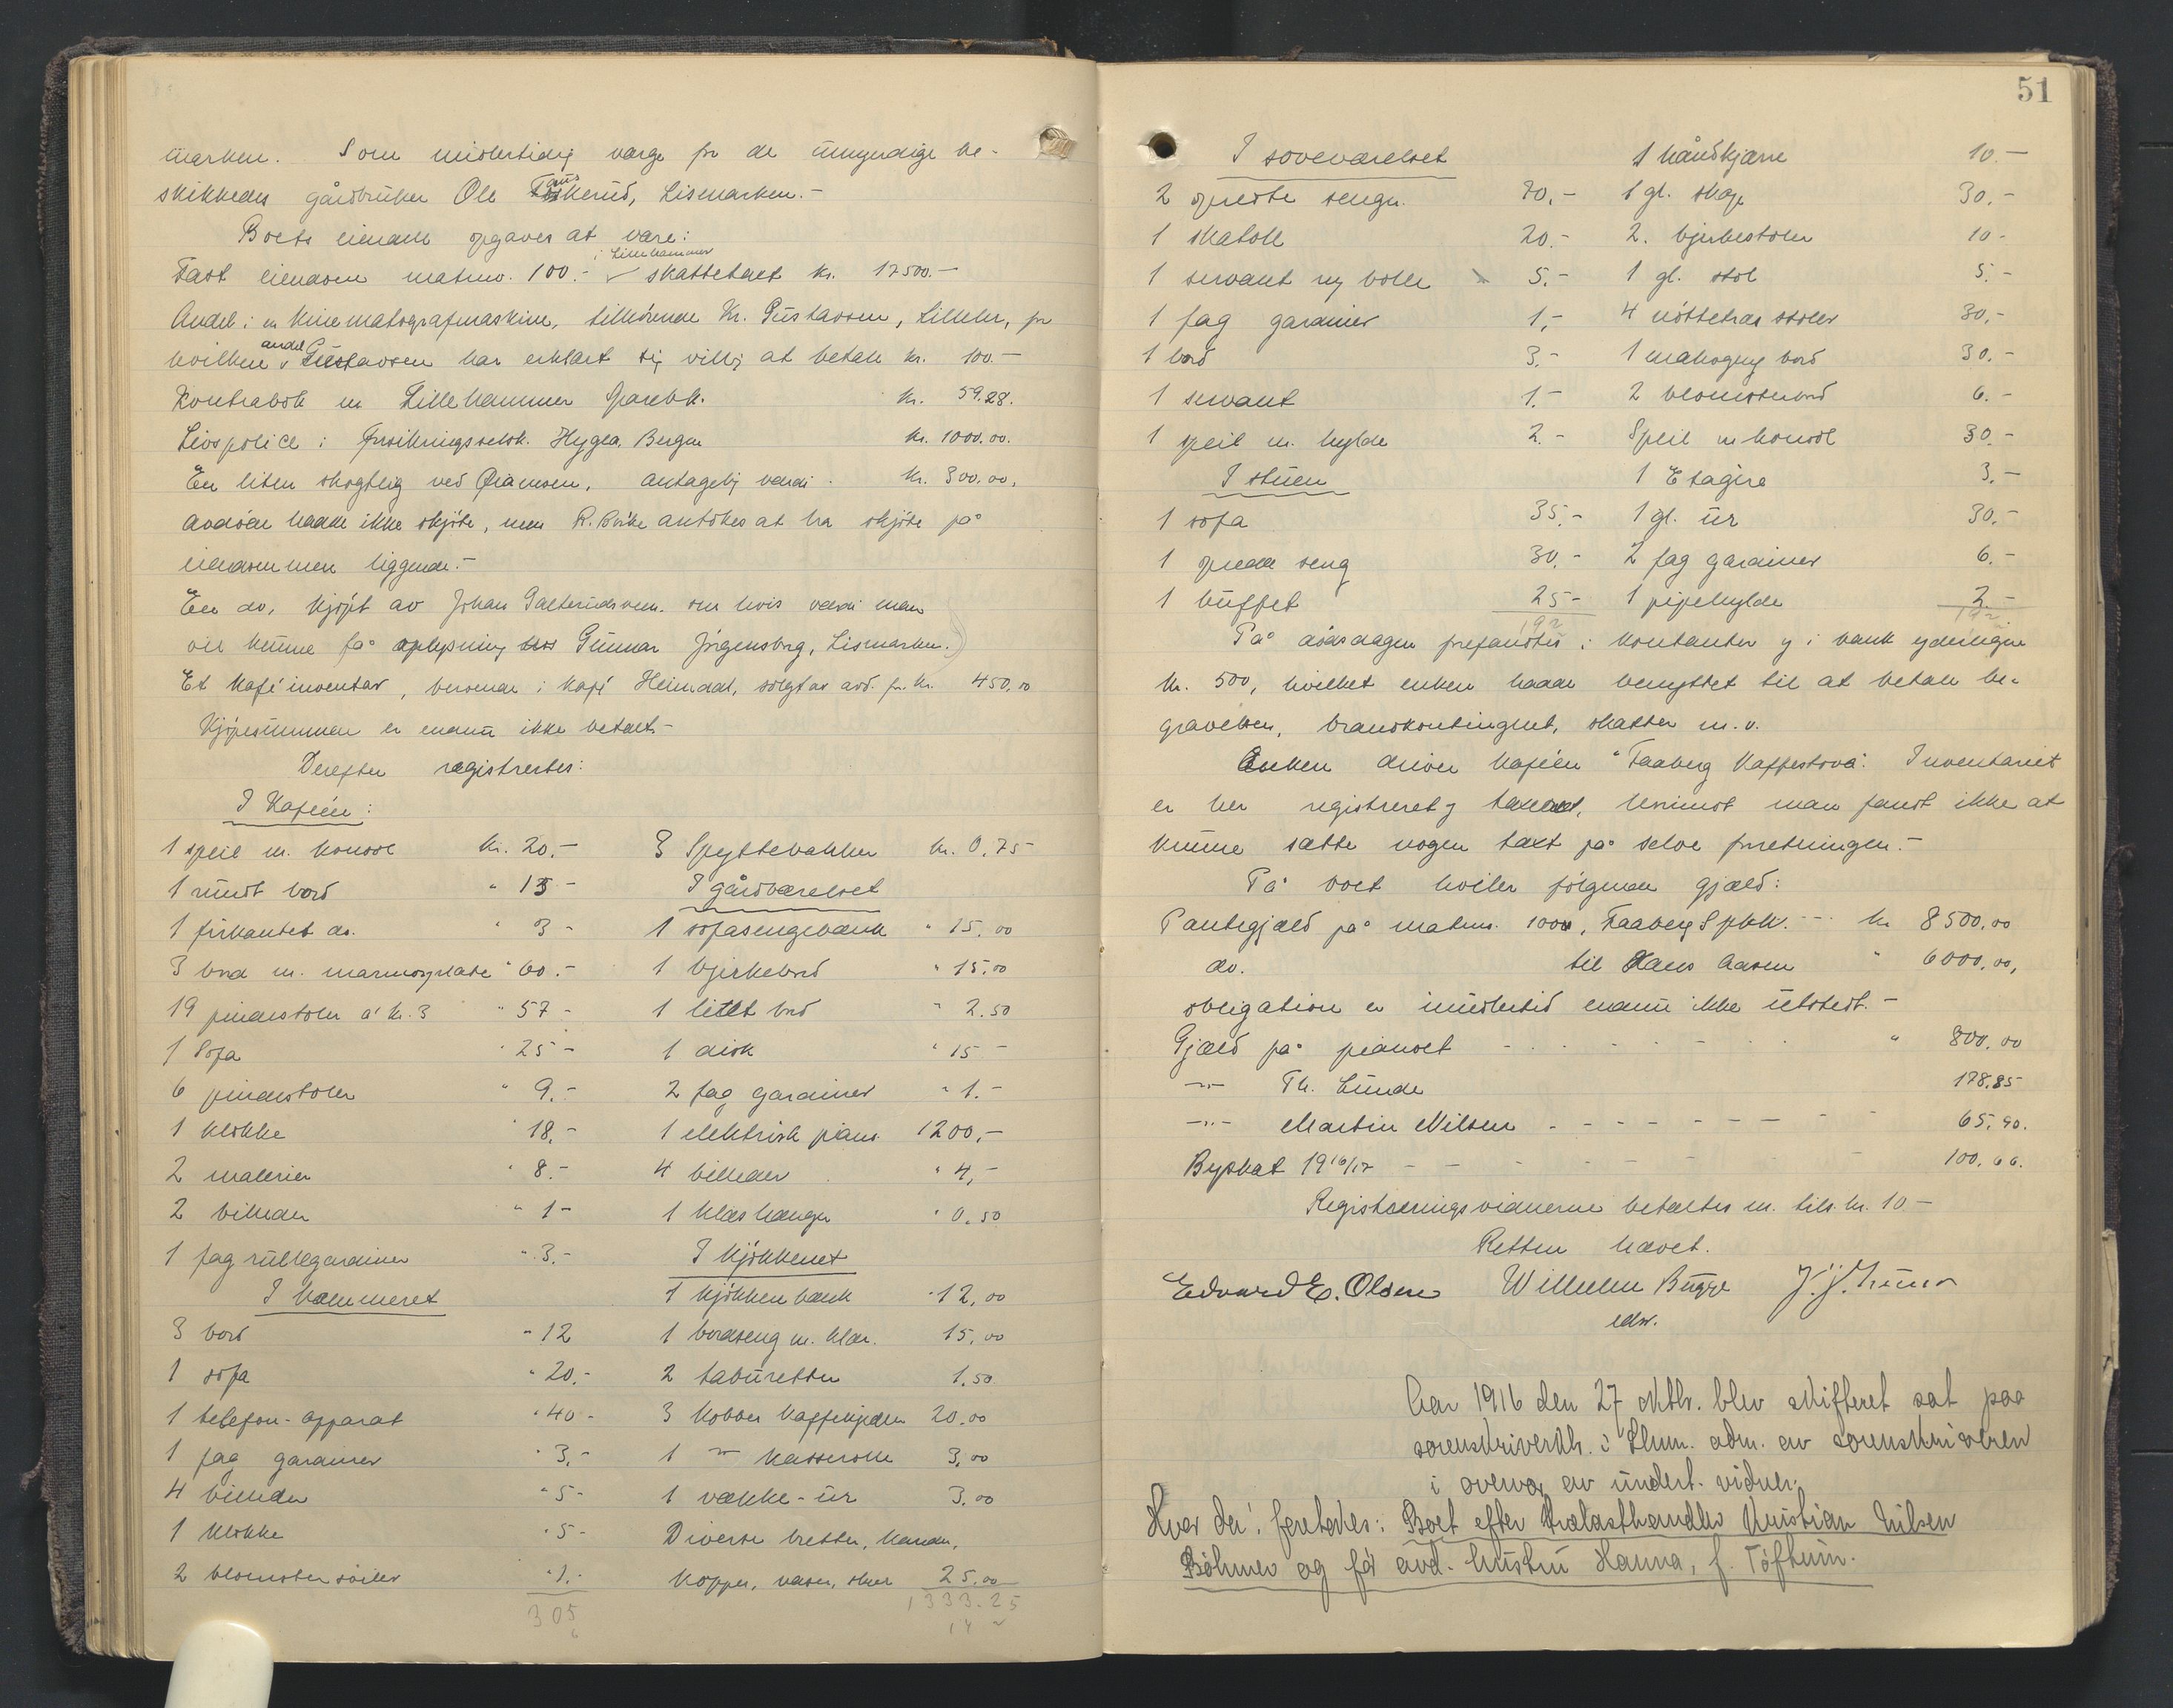 marken. Som midlertidig værge for de umyndige be-
skikkedes gårdbruker Ole Lismarken.-
Boets eiendele opgaves at være:
i Lillehammer
Fast eiendom matrno. 100.- skattetaxt kr. 17500.-
Andel i en kinematografmaskine, tilhørende Kr. Gustavsen, Lillehr, for
hvilken andel Gustavsen har erklært sig villig at betale kr. 100.-
Kontrabok m Lillehammer Sparebk. kr. 59.28.
Livspolice i forsikringsselsk. Hygea, Bergen kr. 1000.00.
En liten skogteig ved antagelig værdi. kr. 300.00.
avdøde hadde ikke skjøte, men antokes at ha skjøte på
eiendommen liggende.-
En do. kjøpt av Johan om hvis værdi man
vil kunne få oplysning hos Gunnar Jørgensborg, Lismarken.
Et kaféinventar, beroende i kafé Heimdal, solgt av avd. for kr. 450.00
Kjøpesummen er endnu ikke betalt.-
Derefter registrertes:
I Kaféen:
1 speil m. konsol kr. 20.- 3 Spyttebakker kr. 0.75
1 rundt bord " 15- I gårdværelset
1 firkantet do. " 3- 1 sofasengebænk " 15.00
3 bord m. marmorplate " 60.- 1 bjerkebord " 15.00
19 pindestoler á kr. 3 " 57- 1 litet bord " 2.50
1 Sofa " 25- 1 disk " 15-
6 pindestoler " 9.- 2 fag gardiner " 1.-
1 klokke " 18.- 1 elektrisk piano 1200,-
2 malerier " 8.- 4 billeder " 4,-
2 billeder " 1- 1 klæshænger " 0.50
1 fag rullegardiner " 3.- I kjøkkenet
I kammeret 1 kjøkkenbænk " 12,00
3 bord " 12 1 bordseng m. klær. 15,00
1 sofa " 20.- 2 taburetter 1.50
1 telefon-apparat " 40- 3 kobber kaffekjedler 20.00
1 fag gardiner " 3,- 1 -"- kasserolle 3,00
4 billeder " 5- 1 vække-ur 3.00
1 klokke " 5- Diverse bretter, kander,
2 blomstersøiler " 1.- kopper, vaser, skeer 25,00
305 1333.25
51
I soveværelset 1 håndkjærre 10.-
2 opredte senger. 70.- 1 gl. skap 30.-
1 skatoll 20.- 2. bjerkestoler 10-
1 servant og bolle 5.- 1 gl. stol 5.-
1 fag gardiner 1,- 4 nøttetræs stoler 30,-
1 bord 3.- 1 mahogny bord 30.-
1 servant 1.- 2 blomsterbord 6.-
1 speil m. hylde 2.- Speil m konsol 30.-
I stuen 1 Etagére 3.-
1 sofa 35.- 1 gl. ur 30.-
1 opredd seng 30.- 2 fag gardiner 6.-
1 buffet 25- 1 pipehylde 2.-
192 192
På dødsdagen forefandtes i kontanter og i bank yderligere
kr. 500, hvilket enken hadde benyttet til at betale be-
gravelsen, brandkontingent, skatter m.v.
Enken driver kaféen "Faaberg Kaffestova". Inventariet
er her registreret og taxeret, hvorimot man fandt ikke at
kunne sætte nogen taxt på selve forretningen.-
På boet hviler følgende gjæld:
Pantegjæld på matrno. 100, Faaberg Spbk. - - kr 8500,00
do. til Hans Aasen " 6000,00,
obligation er imidlertid endnu ikke utstedt.-
Gjæld på pianoet - - - - - - " 800,00
-"- Th. Lunde 178.85
-"- Martin Nilsen - - - - - - - - 65,90.
Byskat 1916/17 - - - - - - - 100.66.
Registreringsvidnerne betaltes m. tils. kr. 10-
Retten hævet.
Edvard E. Olsen Wilhelm Bugge
edsv.
Aar 1916 den 27 oktbr. blev skifteret sat paa
sorenskriverktr. i Lhmr. adm. av sorenskriveren
i overvær av undert. vidner.
Hvor da: foretokes: Boet efter trælasthandler Kristian Nilsen
Bøhmer og før avd. hustru Hanna, f. Toftum.